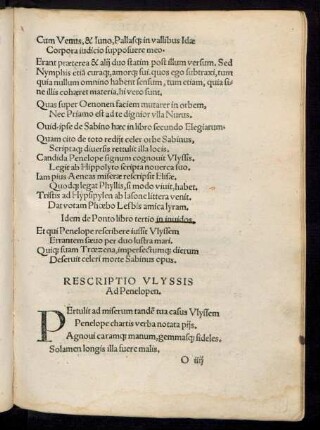 Cum Venus, & Iuno, Pallasq; in vallibus Idæ
Corpora iudicio supposuere meo.
Erant præterea & alij duo statim post illum versum. Sed
Nymphis etiã curaq; amorq; fui. quos ego subtraxi, tum
quia nullum omnino habent sensum, tum etiam, quia si
ne illis cohæret materia, hi vero sunt.
Quas super Oenonen faciem mutarer in orbem,
Nec Priamo est ad te dignior vlla Nurus.
Ouid ipse de Sabino hæc in libro secundo Elegiarum
Quam cito de toto redijt celer orbe Sabinus,
Scriptaq; diuersis rettulit illa locis.
Candida Penelope signum cognouit Vlyssis,
Legit ab Hippolyto scripta nouerca suo.
Iam pius Aeneas miseræ rescripsit Elisæ,
Quodq; legat Phyllis, si modo viuit, habet.
Tristis ad Hypsipylen ab Iasone littera venit.
Dat votam Phœbo Lesbis amica lyram.
Idem de Ponto libro tertio in inuidos
Et qui Penelope rescribere iussit Vlyssem
Errantem sæuo per duo lustra mari.
Quiq; suam Trœzena, imperfectumq; dierum
Deseruit celeri morte Sabinus opus.
RESCRIPTIO VLYSSIS
Ad Penelopen.
PErtulit ad miserum tandẽ tua casus Vlyssem
Penelope chartis verba notata pijs.
Agnoui caramq; manum, gemmasq; fideles.
Solamen longis illa fuere malis.
O iiij